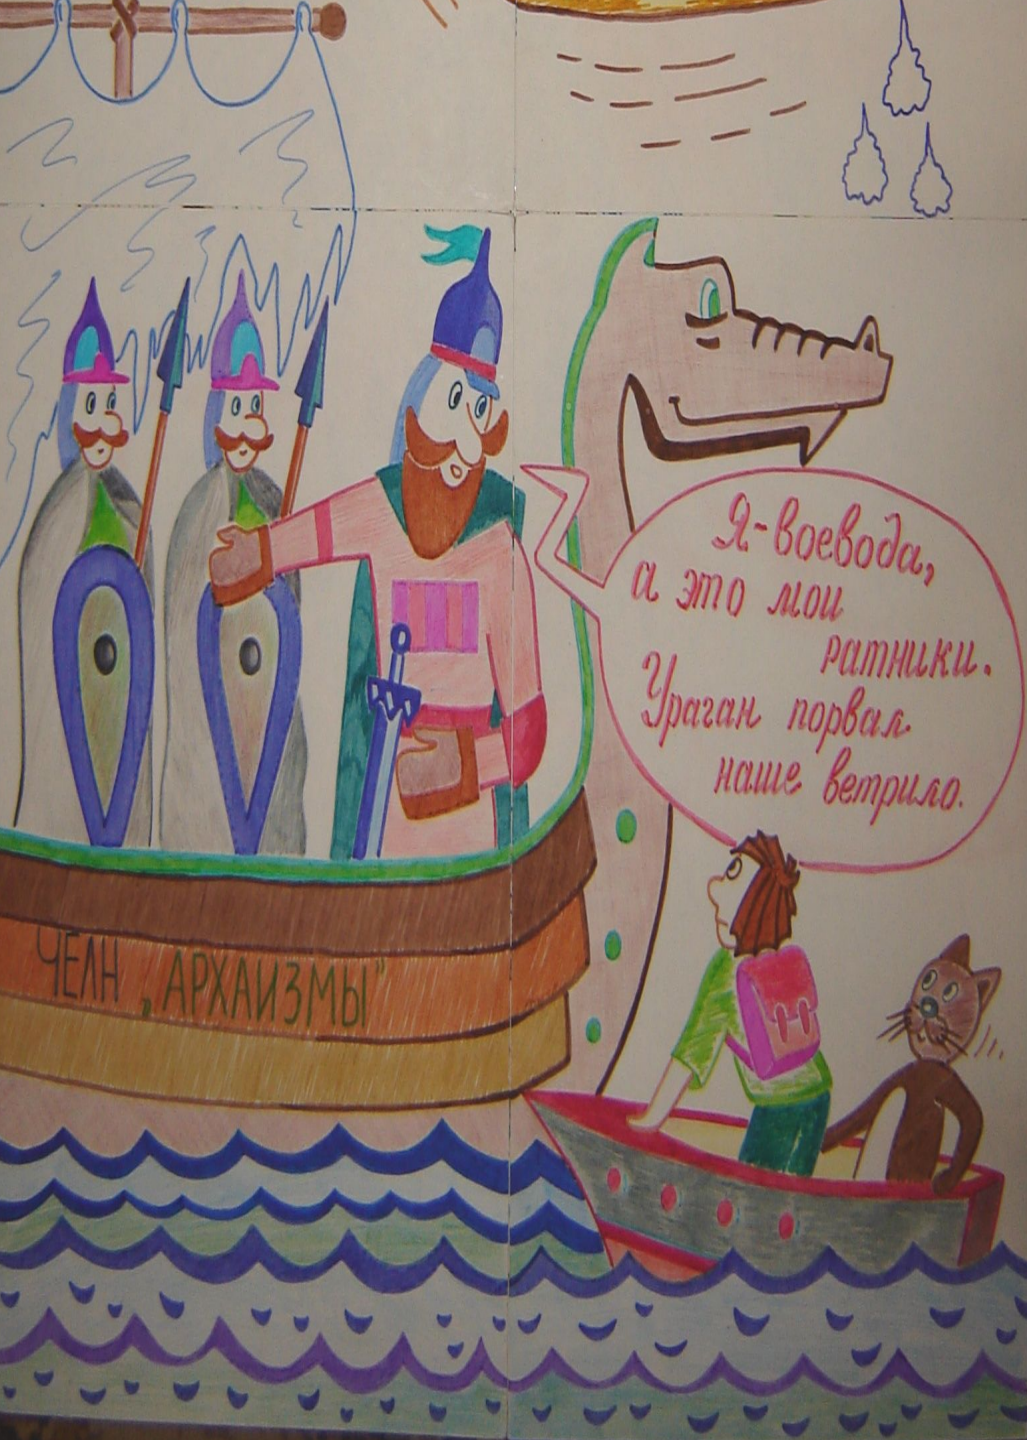 Я-воевода,
а это мои
ратники.
Ураган порвал
наше ветрило.
ЧЕЛН „АРХАИЗМЫ"